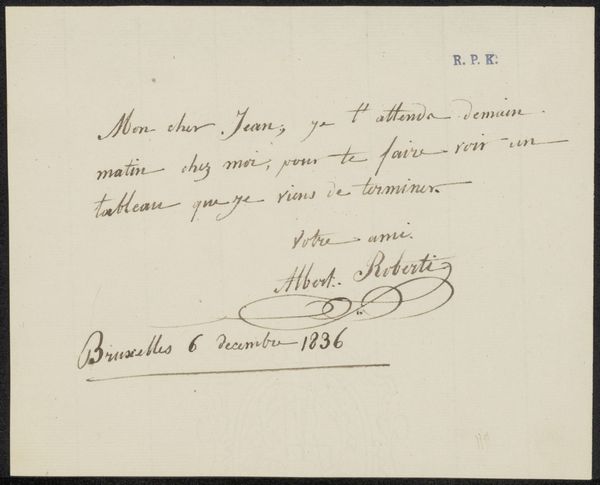 R. P. K.
Mon cher Jean, je t'attends demain
matin chez moi, pour te faire voir un
tableau que je viens de terminer.
votre ami.
Albert Roberti
Bruxelles 6 decembre 1836